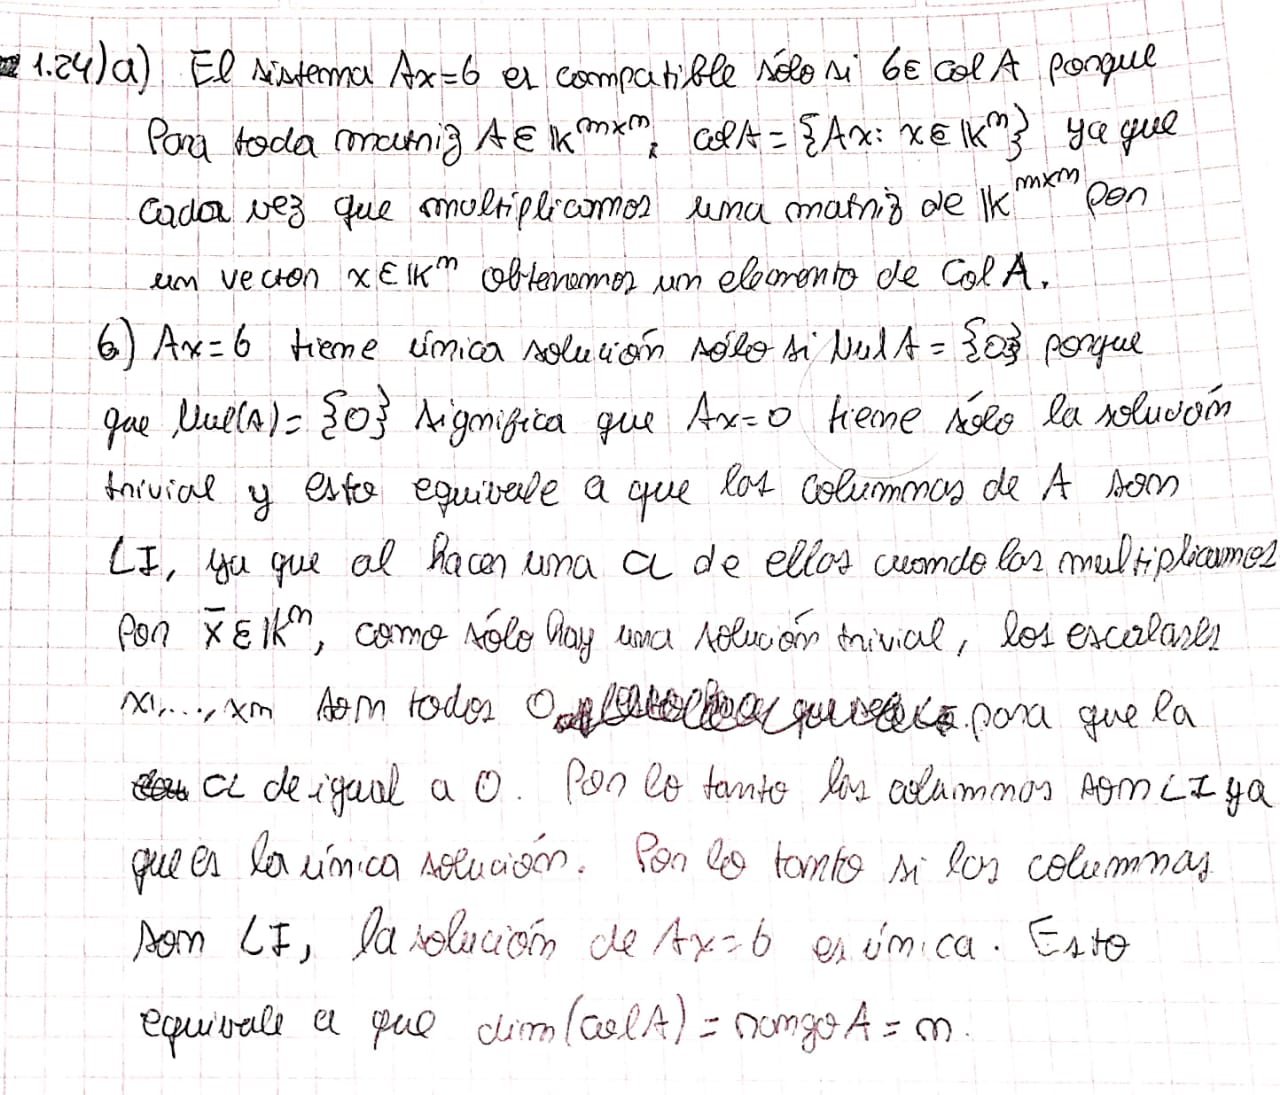 1.24)a) El sistema Ax=b es compatible sólo si b∈ Col A porque
Para toda matriz A∈ K^{m×n}, ColA = {Ax: x∈ K^n} ya que
cada vez que multiplicamos una matriz de K^{m×n} por
un vector x∈K^n obtenemos un elemento de Col A.
b) Ax=b tiene única solución sólo si Nul A = {0} porque
que Nul(A)= {0} significa que Ax=0 tiene sólo la solución
trivial y esto equivale a que las columnas de A son
LI, ya que al hacer una CL de ellas cuando las multiplicamos
por x̄∈K^n, como sólo hay una solución trivial, los escalares
x1,..., xn son todos 0 para que la
CL de igual a 0. Por lo tanto las columnas son LI ya
que es la única solución. Por lo tanto si las columnas
son LI, la solución de Ax=b es única. Esto
equivale a que dim(colA) = rango A = n.